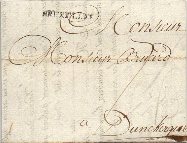 BRUXELLES
Monsieur
Monsieur
a Dunckerque